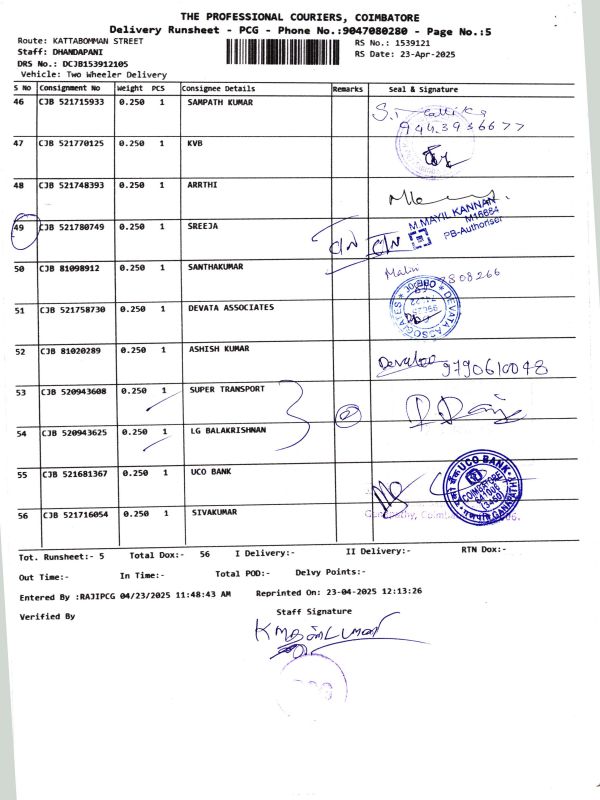 THE PROFESSIONAL COURIERS, COIMBATORE
Delivery Runsheet - PCG - Phone No.:9047080280 - Page No.:5
Route: KATTABOMMAN STREET
RS No.: 1539121
Staff: DHANDAPANI
RS Date: 23-Apr-2025
DRS No.: DCJB153912105
Vehicle: Two Wheeler Delivery
S No Consignment No Weight PCS Consignee Details Remarks Seal & Signature
46 CJB 521715933 0.250 1 SAMPATH KUMAR
9443936677
47 CJB 521770125 0.250 1 KVB
48 CJB 521748393 0.250 1 ARRTHI
49 CJB 521780749 0.250 1 SREEJA C/N C/N
M.MAYIL KANNAN
M16664
PB-Authoriser
50 CJB 81098912 0.250 1 SANTHAKUMAR
Malin 808266
51 CJB 521758730 0.250 1 DEVATA ASSOCIATES
DEVATA ASSOCIATES
52 CJB 81020289 0.250 1 ASHISH KUMAR
Devatee 9790610048
53 CJB 520943608 0.250 1 SUPER TRANSPORT
54 CJB 520943625 0.250 1 LG BALAKRISHNAN
55 CJB 521681367 0.250 1 UCO BANK
UCO BANK
COIMBATORE
641006
(3460)
GANAPATHY
56 CJB 521716054 0.250 1 SIVAKUMAR
Tot. Runsheet:- 5 Total Dox:- 56 I Delivery:- II Delivery:- RTN Dox:-
Out Time:- In Time:- Total POD:- Delvy Points:-
Entered By :RAJIPCG 04/23/2025 11:48:43 AM Reprinted On: 23-04-2025 12:13:26
Verified By
Staff Signature